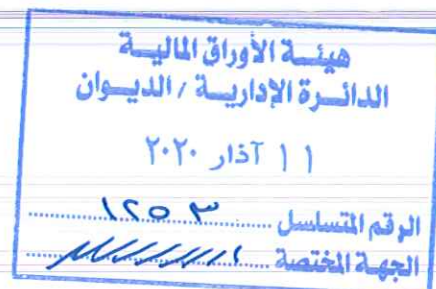 هيئة الأوراق المالية
الدائرة الإدارية / الديوان
١١ آذار ٢٠٢٠
الرقم المتسلسل ١٢٥٣
الجهة المختصة